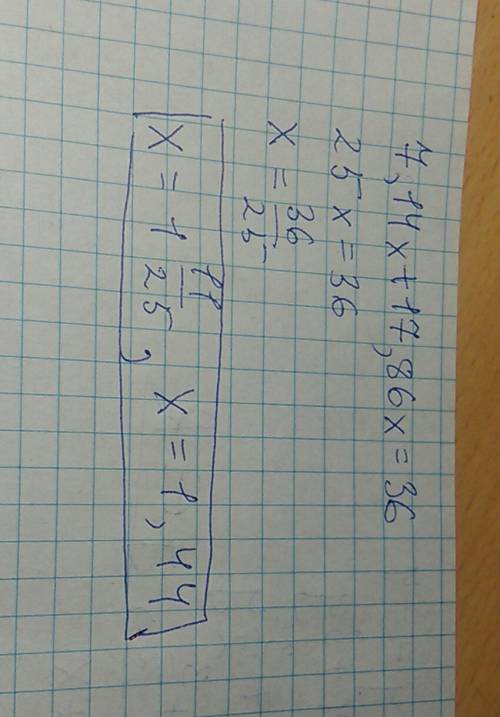 7,14x+17,86x=36
25x=36
x=36/25
x=1 11/25, x=1,44